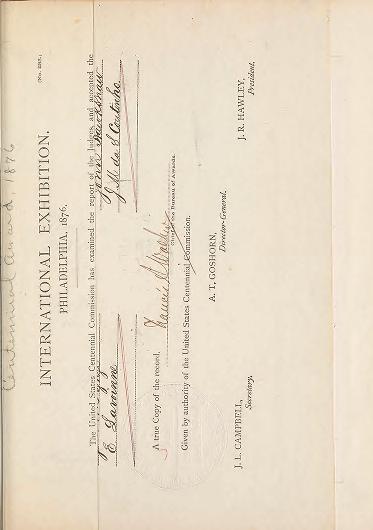 Centennial Award, 1876
(No. 235.)
INTERNATIONAL EXHIBITION.
PHILADELPHIA, 1876.
The United States Centennial Commission has examined the report of the Judges, and accepted the
John Hawkshaw
E Lavoinne
J. M. da S. Coutinho
A true Copy of the record.
Francis A. Walker
Chief of the Bureau of Awards.
Given by authority of the United States Centennial Commission.
J. L. CAMPBELL, A. T. GOSHORN, J. R. HAWLEY,
Secretary. Director-General. President.